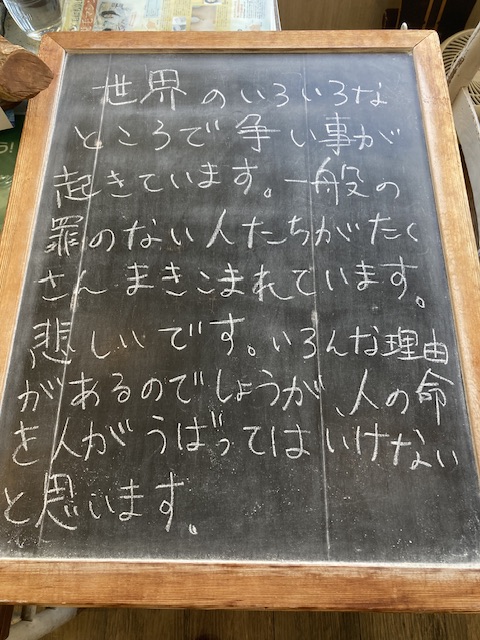 世界のいろいろな
ところで争い事が
起きています。一般の
罪のない人たちがたく
さんまきこまれています。
悲しいです。いろんな理由
があるのでしょうが、人の命
を人がうばってはいけない
と思います。